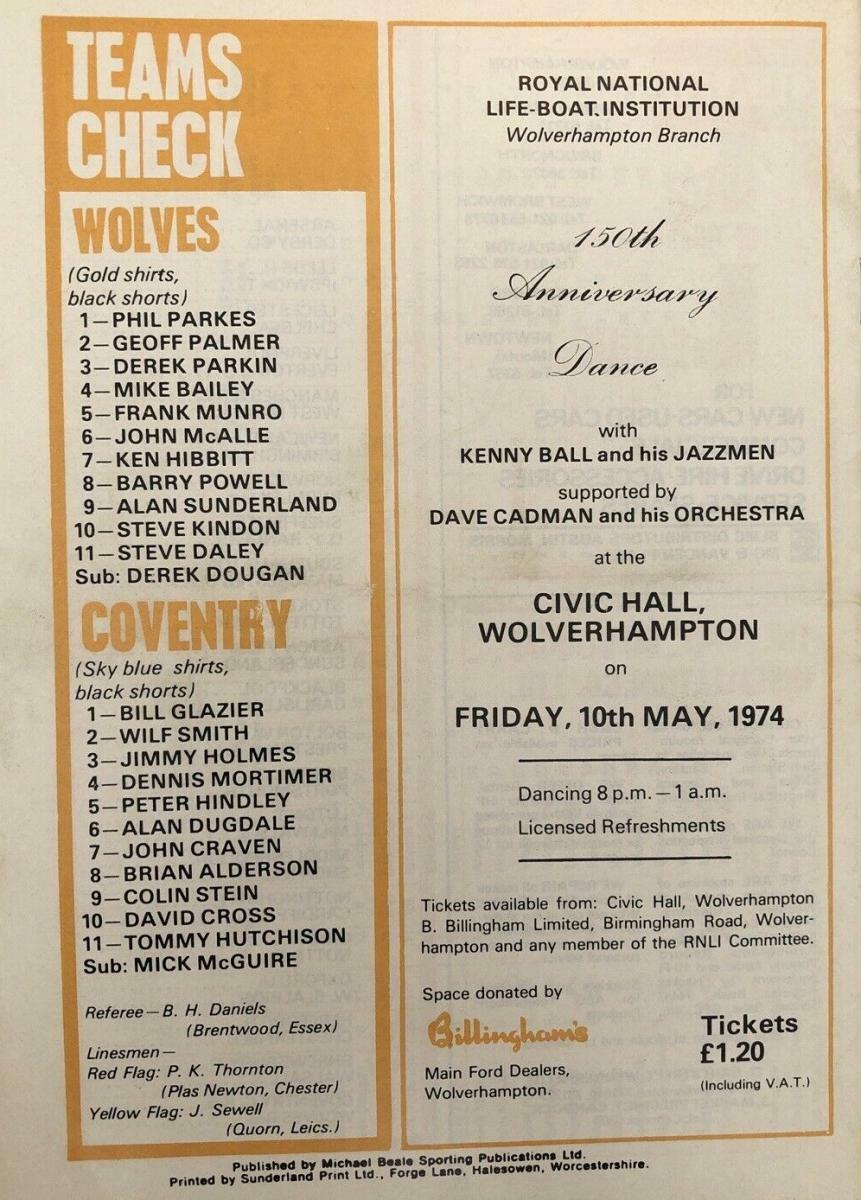 TEAMS
CHECK
WOLVES
(Gold shirts,
black shorts)
1—PHIL PARKES
2—GEOFF PALMER
3—DEREK PARKIN
4—MIKE BAILEY
5—FRANK MUNRO
6—JOHN McALLE
7—KEN HIBBITT
8—BARRY POWELL
9—ALAN SUNDERLAND
10—STEVE KINDON
11—STEVE DALEY
Sub: DEREK DOUGAN
COVENTRY
(Sky blue shirts,
black shorts)
1—BILL GLAZIER
2—WILF SMITH
3—JIMMY HOLMES
4—DENNIS MORTIMER
5—PETER HINDLEY
6—ALAN DUGDALE
7—JOHN CRAVEN
8—BRIAN ALDERSON
9—COLIN STEIN
10—DAVID CROSS
11—TOMMY HUTCHISON
Sub: MICK McGUIRE
Referee—B. H. Daniels
(Brentwood, Essex)
Linesmen—
Red Flag: P. K. Thornton
(Plas Newton, Chester)
Yellow Flag: J. Sewell
(Quorn, Leics.)
ROYAL NATIONAL
LIFE-BOAT INSTITUTION
Wolverhampton Branch
150th
Anniversary
Dance
with
KENNY BALL and his JAZZMEN
supported by
DAVE CADMAN and his ORCHESTRA
at the
CIVIC HALL,
WOLVERHAMPTON
on
FRIDAY, 10th MAY, 1974
Dancing 8 p.m.—1 a.m.
Licensed Refreshments
Tickets available from: Civic Hall, Wolverhampton
B. Billingham Limited, Birmingham Road, Wolver-
hampton and any member of the RNLI Committee.
Space donated by
Billingham's
Main Ford Dealers,
Wolverhampton.
Tickets
£1.20
(Including V.A.T.)
Published by Michael Beale Sporting Publications Ltd.
Printed by Sunderland Print Ltd., Forge Lane, Halesowen, Worcestershire.